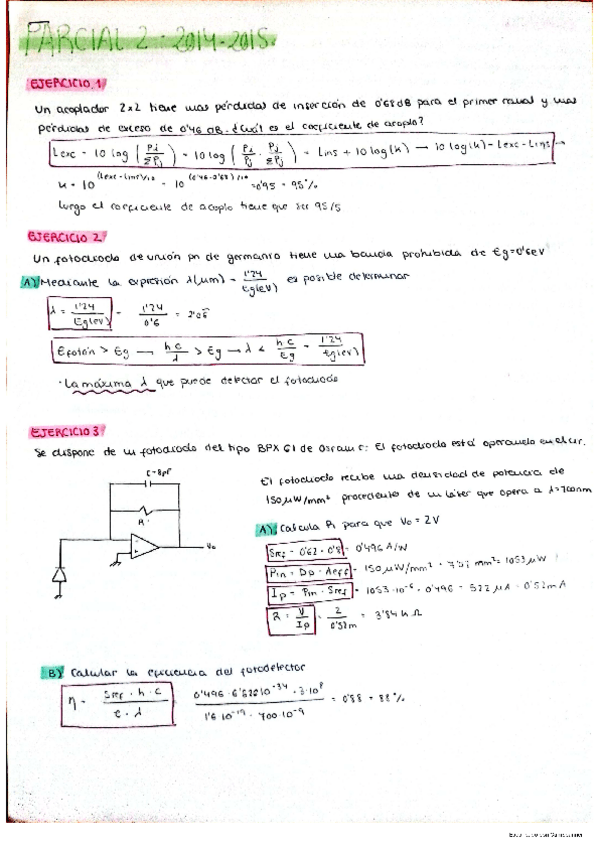 PARCIAL 2 - 2014-2015.
EJERCICIO 1
Un acoplador 2x2 tiene unas pérdidas de inserción de 0'68 dB para el primer canal y unas
pérdidas de exceso de 0'46 dB. ¿Cuál es el coeficiente de acoplo?
Lexc = 10 log (Pi / ΣPj) = 10 log (Pi / Pj · Pj / ΣPj) = Lins + 10 log (k) → 10 log(k) = Lexc - Lins →
k = 10^(Lexc-Lins)/10 = 10^(0'46-0'68)/10 = 0'95 = 95%
luego el coeficiente de acoplo tiene que ser 95/5
EJERCICIO 2
Un fotodiodo de unión pn de germanio tiene una banda prohibida de Eg=0'6eV
A) Mediante la expresión λ(μm) = 1'24 / Eg(eV) es posible determinar
λ = 1'24 / Eg(eV) = 1'24 / 0'6 = 2'06
Efotón > Eg → hc / λ > Eg → λ < hc / Eg = 1'24 / Eg(eV)
· La máxima λ que puede detectar el fotodiodo
EJERCICIO 3
Se dispone de un fotodiodo del tipo BPX 61 de Osram c: El fotodiodo está operando en el cir.
C=8pF
R
Vo
El fotodiodo recibe una densidad de potencia de
150μW/mm² procedente de un láser que opera a λ=700nm
A) Calcula R, para que Vo = 2V
Sref = 0'62 · 0'8 = 0'496 A/W
Pin = Dp · Aeff = 150μW/mm² · 7'02 mm² = 1053μW
Ip = Pin · Sref = 1053·10⁻⁶ · 0'496 = 522 μA = 0'52mA
R = V / Ip = 2 / 0'52m = 3'84 kΩ
B) Calcular la eficiencia del fotodetector
η = Sref · h · c / e · λ = 0'496 · 6'62·10⁻³⁴ · 3·10⁸ / 1'6·10⁻¹⁹ · 700·10⁻⁹ = 0'88 = 88%